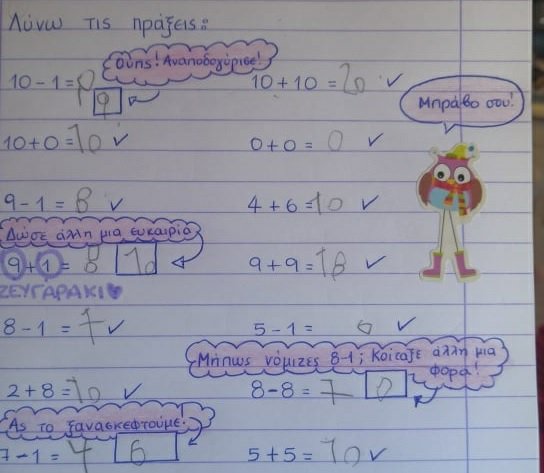 Λύνω τις πράξεις:
Ούπς! Αναποδογύρισε!
10 - 1 = 9 10 + 10 = 20 ✓
9
Μπράβο σου!
10 + 0 = 10 ✓ 0 + 0 = 0 ✓
9 - 1 = 8 ✓ 4 + 6 = 10 ✓
Δώσε άλλη μια ευκαιρία
9 + 1 = 8 10 9 + 9 = 18 ✓
ΖΕΥΓΑΡΑΚΙ♥
8 - 1 = 7 ✓ 5 - 1 = ✓
Μήπως νόμιζες 8-1; Κοίταξε άλλη μια
φορά!
2 + 8 = 10 ✓ 8 - 8 = 7 0
Ας το ξανασκεφτούμε!
7 - 1 = 4 6 5 + 5 = 10 ✓